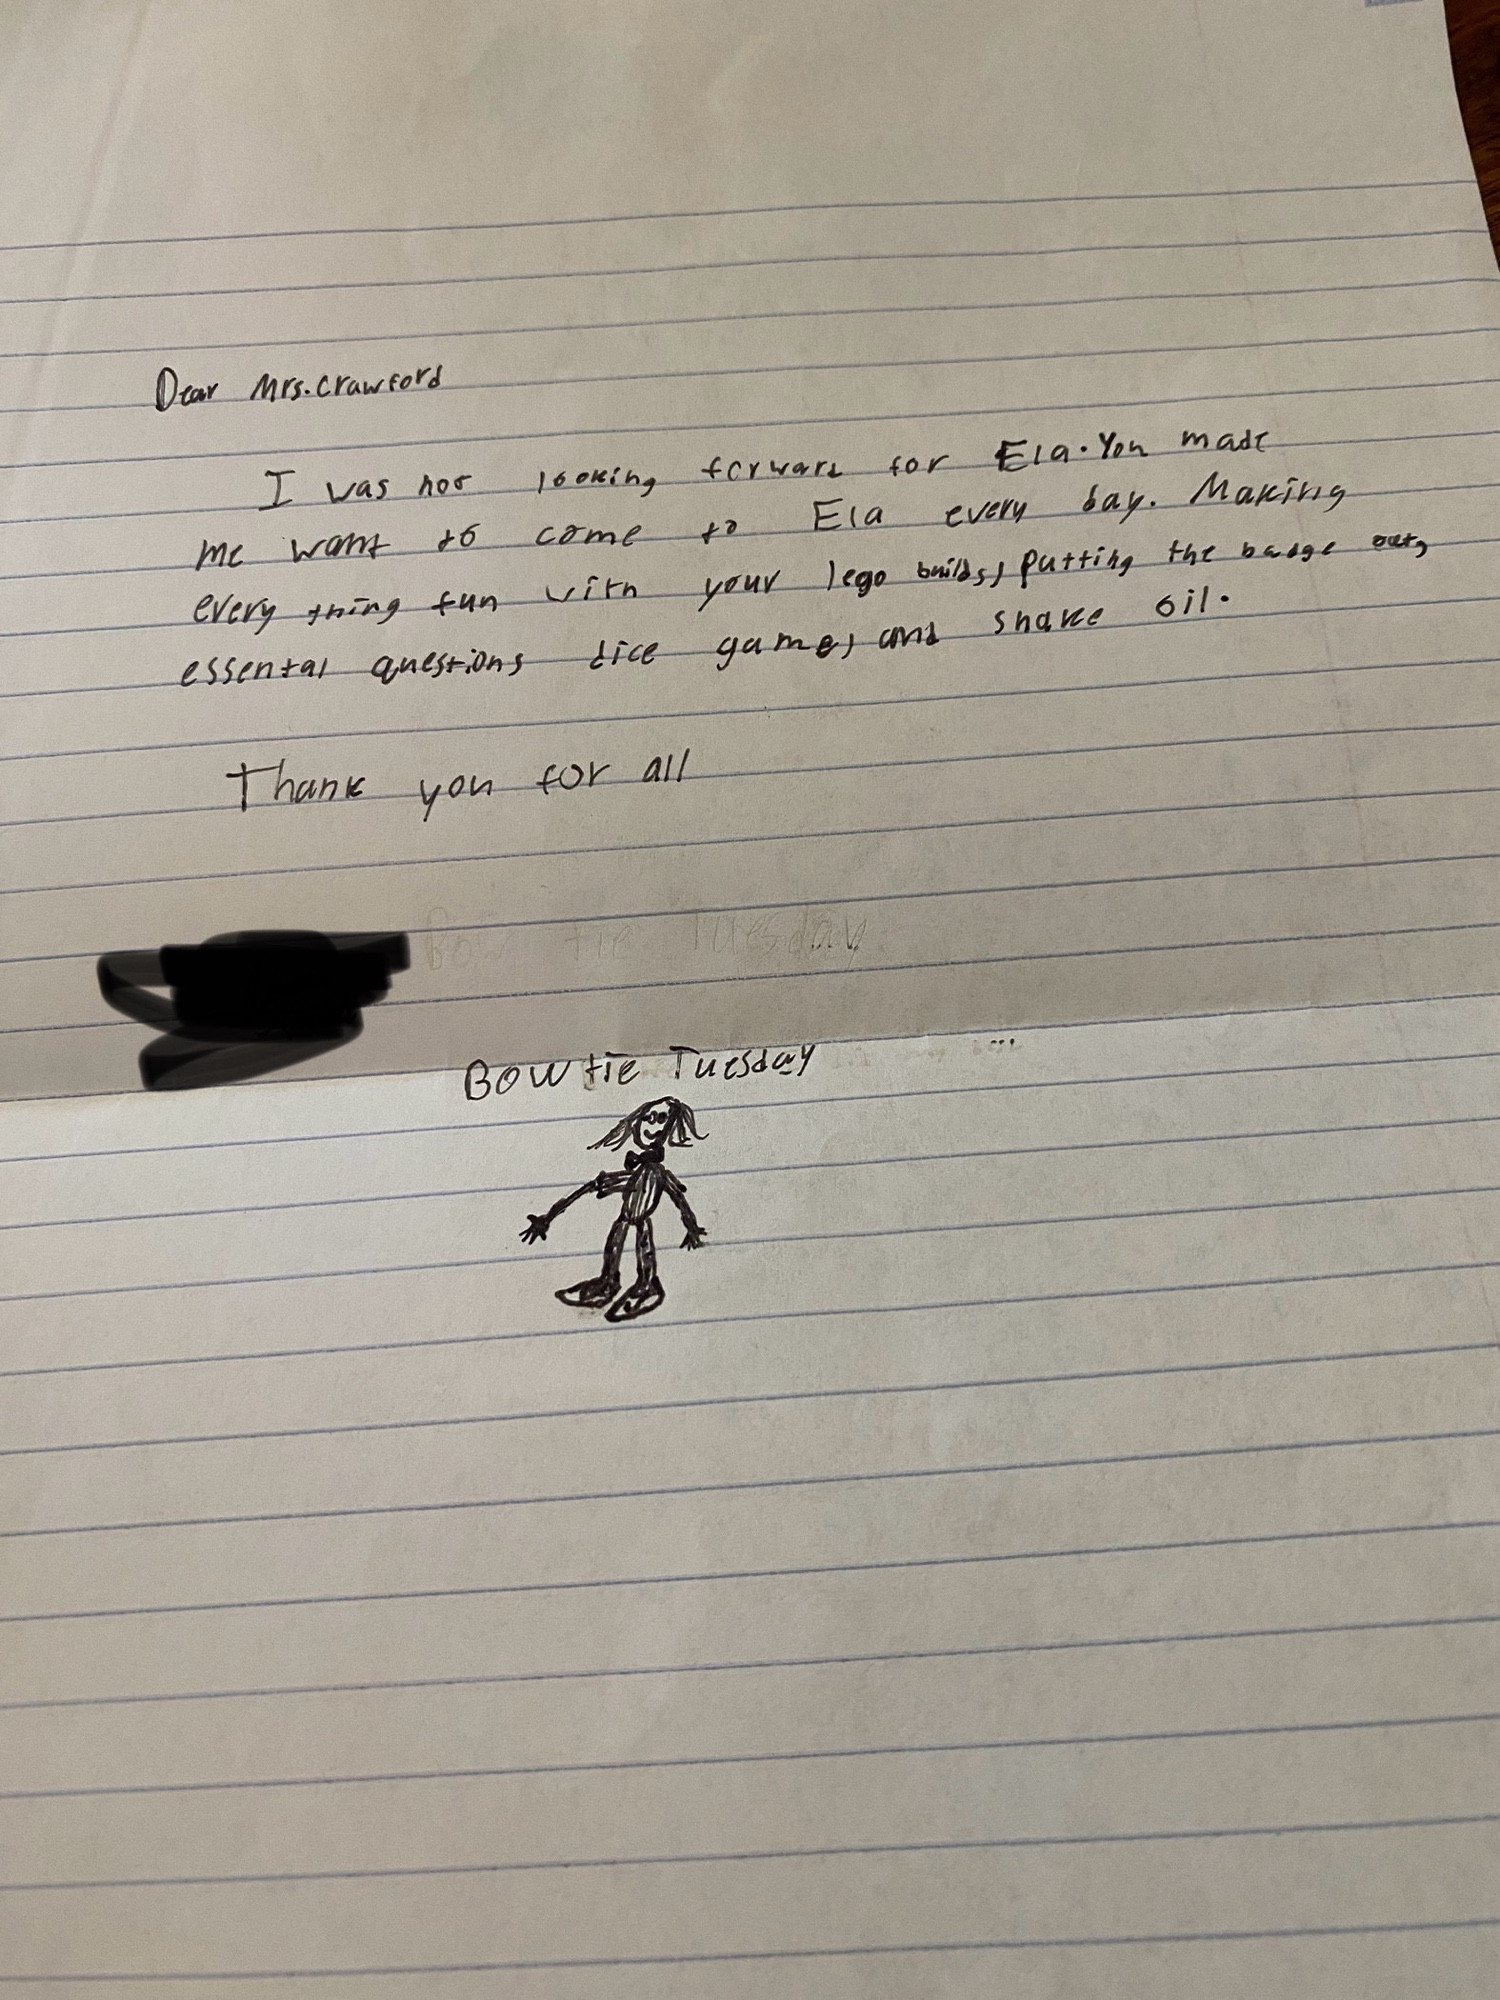 Dear Mrs. Crawford
I was not looking forward for Ela. You made
me want to come to Ela every day. Making
every thing fun with your lego builds, Putting the badge out,
essental questions dice game, and snake oil.
Thank you for all
Bow tie Tuesday
BOW tie Tuesday